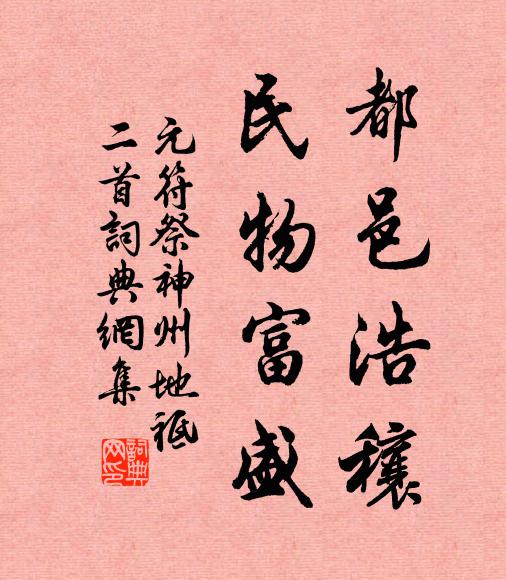 都邑浩穰
民物富盛
元符祭神州地祇
二首詞典網集
詞典網印